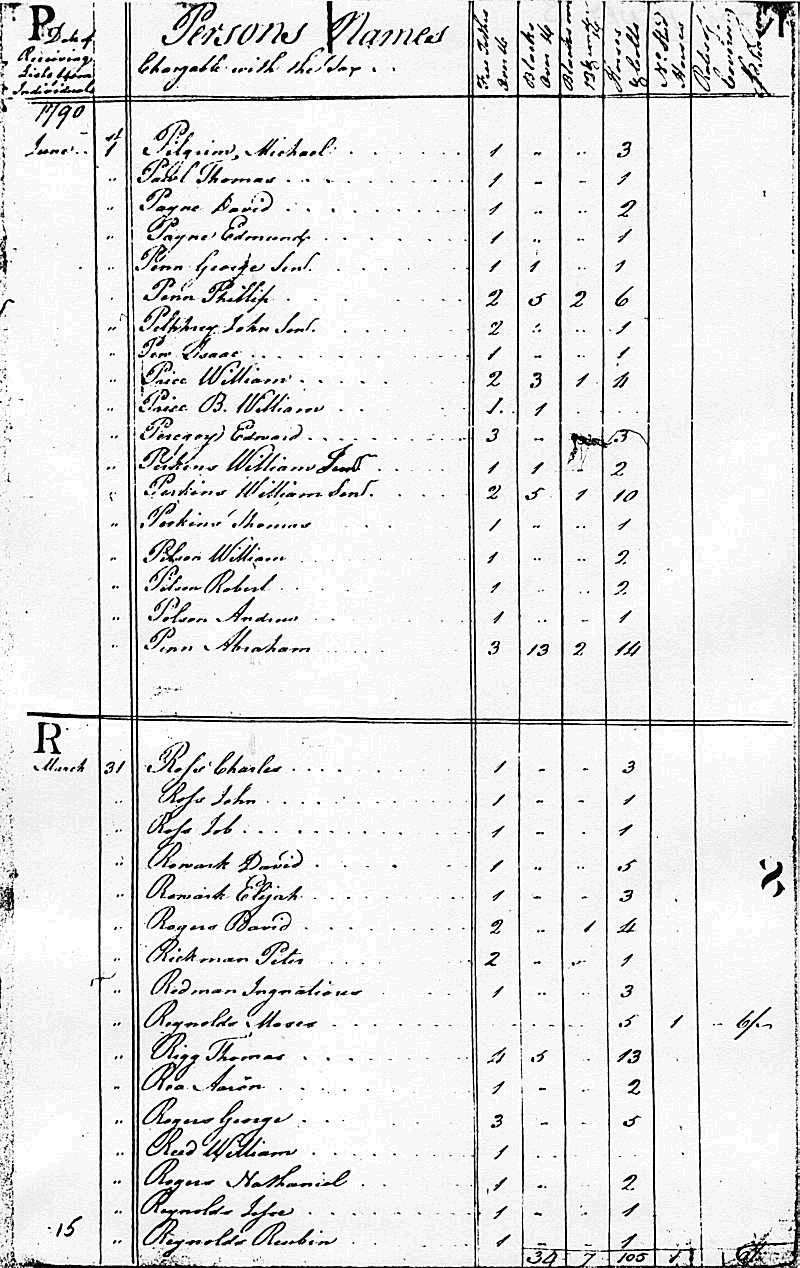 P Date of Receiving Lists from Individuals Persons Names Chargable with the Tax Free Tithes Blacks Over 14 Blacks Horses No. Std Horses Rates of Covering
1790
June 1 Pilgrim, Michael 1 .. .. 3
.. Thomas 1 - - 1
.. Payne David 1 .. .. 2
.. Payne Edmund 1 .. .. 1
.. Penn George Senr. 1 1 .. 1
Penn Phillip 2 5 2 6
.. Pelphrey John Senr. 2 .. .. 1
.. Isaac 1 .. .. 1
.. Price William 2 3 1 4
.. Price B. William 1 1
.. Peregoy Edward 3 .. 3
.. Perkins William 1 1 2
Perkins William Senr. 2 5 1 10
.. Perkins Thomas 1 .. .. 1
.. Pilson William 1 .. .. 2
.. Pilson Robert 1 .. .. 2
.. Polson Andrew 1 .. - 1
.. Penn Abraham 3 13 2 14
R
March 31 Ross Charles 1 - - 3
.. Ross John 1 - - 1
.. Ross Job 1 - .. 1
.. Rowark David 1 .. .. 5
.. Rowark Elijah 1 - - 3
.. Rogers David 2 .. 1 4
.. Rickman Peter 2 .. - 1
.. Redman Ingnatious 1 .. .. 3
.. Reynolds Moses 5 1 .. 6/-
.. Rigg Thomas 4 5 13
.. Rea Aaron 1 - .. 2
.. Rogers George 3 - - 5
.. Reed William 1
.. Rogers Nathaniel 1 .. .. 2
.. Reynolds Jesse 1 - - 1
15 .. Reynolds Reubin 1 - - 1
34 7 105 1